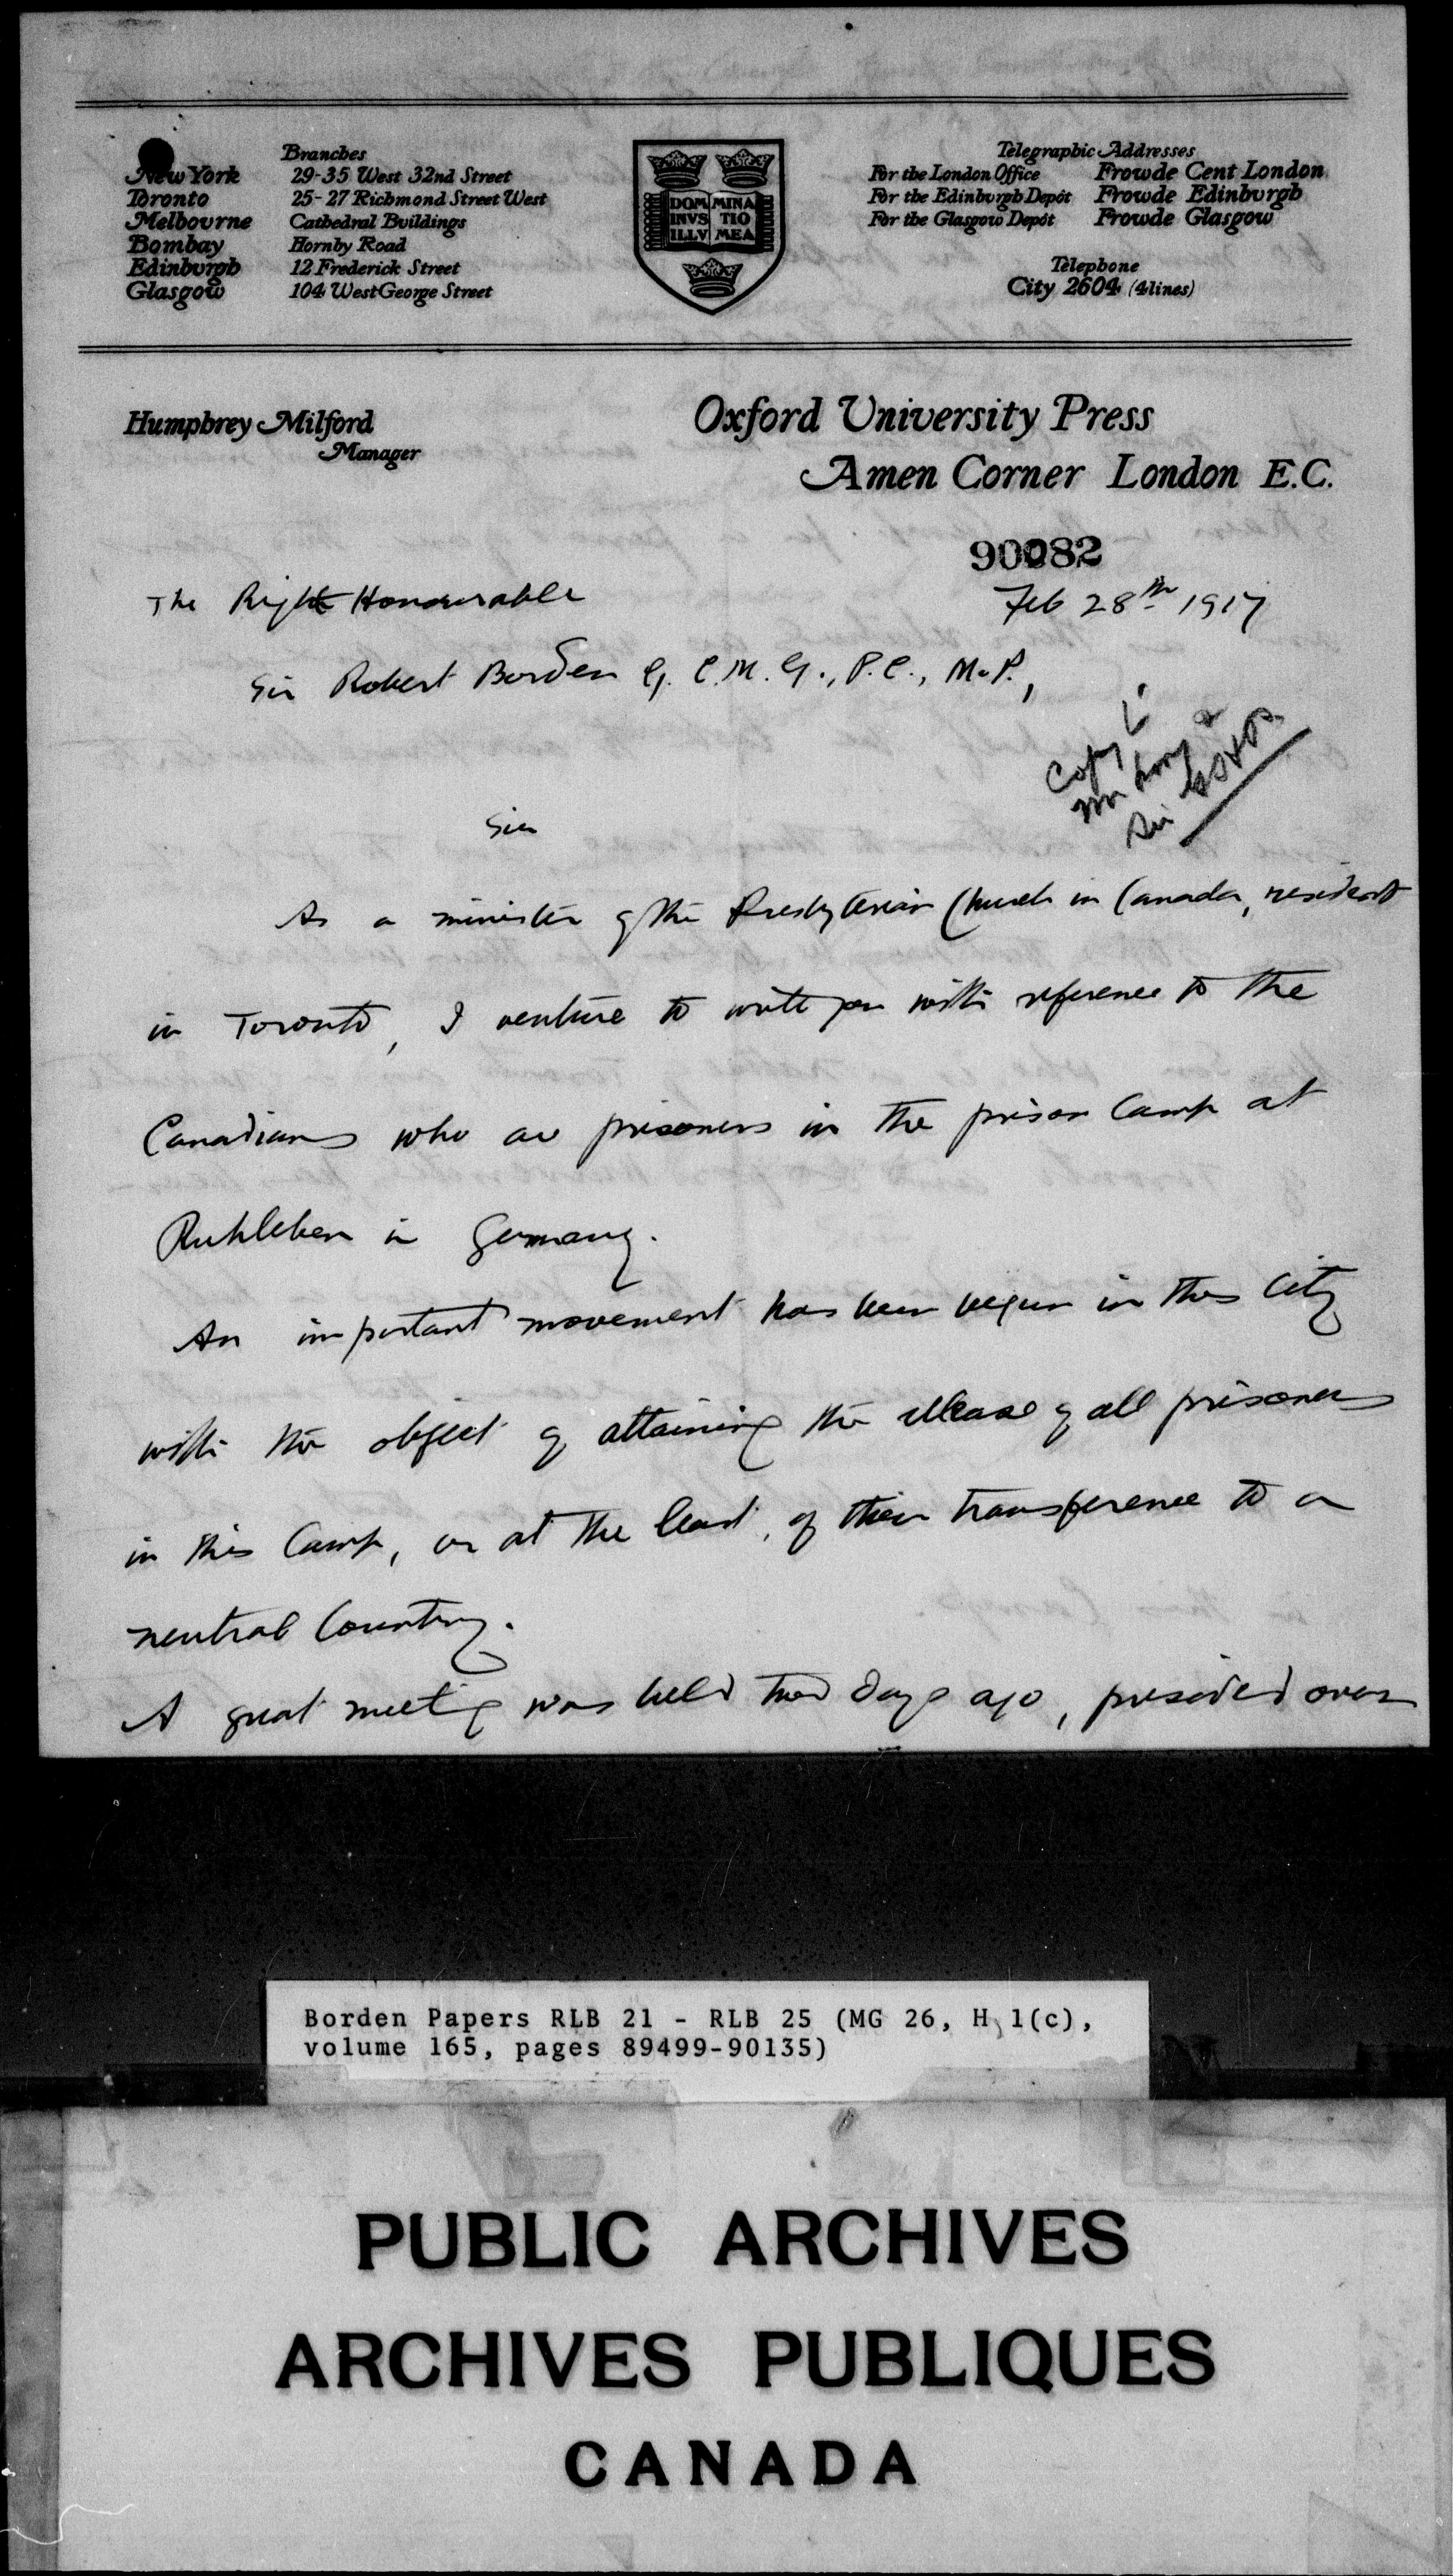 Branches
New York 29-35 West 32nd Street
Toronto 25-27 Richmond Street West
Melbourne Cathedral Buildings
Bombay Hornby Road
Edinburgh 12 Frederick Street
Glasgow 104 West George Street
DOM MINA
INVS TIO
ILLV MEA
Telegraphic Addresses
For the London Office Frowde Cent London
For the Edinburgh Depôt Frowde Edinburgh
For the Glasgow Depôt Frowde Glasgow
Telephone
City 2604 (4 lines)
Humphrey Milford
Manager
Oxford University Press
Amen Corner London E.C.
90082
The Right Honourable
Feb 28th 1917
Sir Robert Borden G.C.M.G., P.C., M.P.,
Copy
Sir
Sir
As a minister of the Presbyterian Church in Canada, resident
in Toronto, I venture to write you with reference to the
Canadians who are prisoners in the prison Camp at
Ruhleben in Germany.
An important movement has been begun in this City
with the object of attaining the release of all prisoners
in this Camp, or at the least, of their transference to a
neutral Country.
A great meeting was held two days ago, presided over
Borden Papers RLB 21 - RLB 25 (MG 26, H 1(c),
volume 165, pages 89499-90135)
PUBLIC ARCHIVES
ARCHIVES PUBLIQUES
CANADA